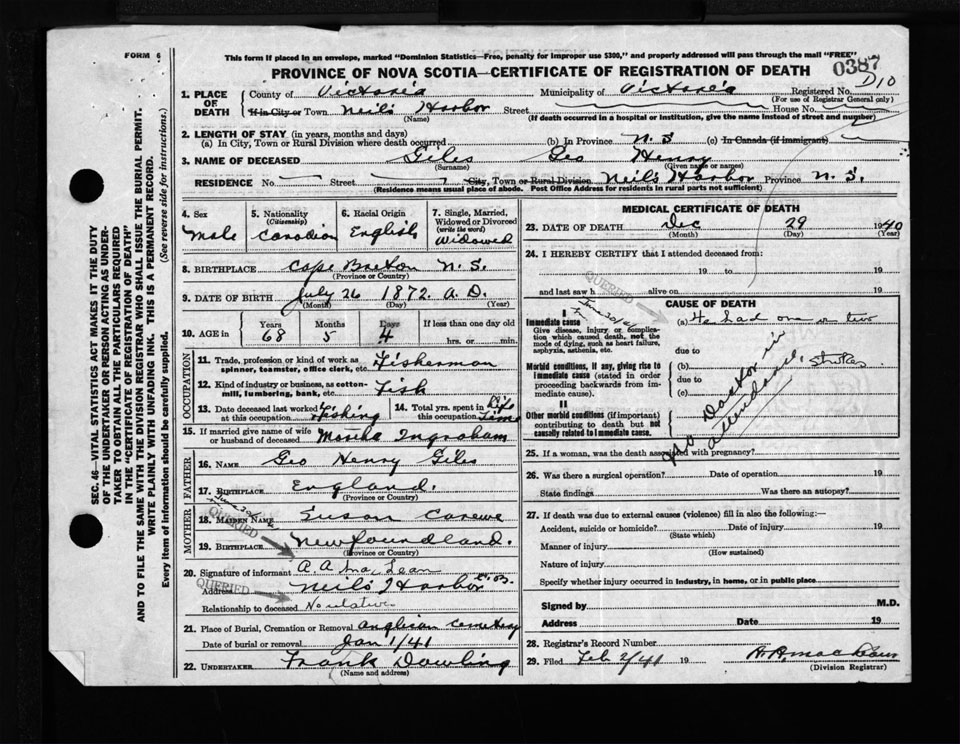 FORM 6
This form if placed in an envelope, marked "Dominion Statistics—Free, penalty for improper use $300," and properly addressed will pass through the mail "FREE"
PROVINCE OF NOVA SCOTIA—CERTIFICATE OF REGISTRATION OF DEATH
0387
D10
1. PLACE OF DEATH
County of Victoria Municipality of Victoria Registered No.
(For use of Registrar General only)
If in City or Town Neil's Harbor Street House No.
(Name) (If death occurred in a hospital or institution, give the name instead of street and number)
2. LENGTH OF STAY (in years, months and days)
(a) In City, Town or Rural Division where death occurred (b) In Province N.S (c) In Canada (if immigrant)
3. NAME OF DECEASED Giles Geo Henry
(Surname) (Given name or names)
RESIDENCE No. Street City, Town or Rural Division Neil's Harbor Province N.S.
(Residence means usual place of abode. Post Office Address for residents in rural parts not sufficient)
4. Sex
Male
5. Nationality (Citizenship)
Canadian
6. Racial Origin
English
7. Single, Married, Widowed or Divorced (write the word)
Widowed
8. BIRTHPLACE Cape Breton N.S.
(Province or Country)
9. DATE OF BIRTH July 26 1872 A.D.
(Month) (Day) (Year)
10. AGE in Years Months Days If less than one day old
68 5 4 hrs. or min.
OCCUPATION
11. Trade, profession or kind of work as spinner, teamster, office clerk, etc. Fisherman
12. Kind of industry or business, as cotton-mill, lumbering, bank, etc. Fish
13. Date deceased last worked at this occupation Fishing
14. Total yrs. spent in this occupation Life Time
15. If married give name of wife or husband of deceased Ingraham
FATHER
16. NAME Geo Henry Giles
17. BIRTHPLACE England.
(Province or Country)
MOTHER
18. MAIDEN NAME Susan
19. BIRTHPLACE Newfoundland.
(Province or Country)
QUERIED
20. Signature of informant A A
Address Neil's Harbor C.B.
QUERIED
Relationship to deceased No relative
21. Place of Burial, Cremation or Removal Anglican Cemetery
Date of burial or removal Jan 1/41
22. UNDERTAKER Frank Dowling
(Name and address)
MEDICAL CERTIFICATE OF DEATH
23. DATE OF DEATH Dec 29 1940
(Month) (Day) (Year)
24. I HEREBY CERTIFY that I attended deceased from:
19 to 19
and last saw h alive on 19
QUERIED
CAUSE OF DEATH
I
Immediate cause (a) He had one or two
Give disease, injury or complication which caused death, not the mode of dying, such as heart failure, asphyxia, asthenia, etc.
due to
Morbid conditions, if any, giving rise to immediate cause (stated in order proceeding backwards from immediate cause). (b) strokes
due to
(c)
II
Other morbid conditions (if important) contributing to death but not causally related to immediate cause.
No Doctor in attendance.
25. If a woman, was the death associated with pregnancy?
26. Was there a surgical operation? Date of operation 19
State findings Was there an autopsy?
27. If death was due to external causes (violence) fill in also the following:—
Accident, suicide or homicide? Date of injury 19
(State which)
Manner of injury
(How sustained)
Nature of injury
Specify whether injury occurred in industry, in home, or in public place
Signed by M.D.
Address Date 19
28. Registrar's Record Number
29. Filed Feb 2/41 19
(Division Registrar)
SEC. 46—VITAL STATISTICS ACT MAKES IT THE DUTY
OF THE UNDERTAKER OR PERSON ACTING AS UNDER-
TAKER TO OBTAIN ALL THE PARTICULARS REQUIRED
IN THE "CERTIFICATE OF REGISTRATION OF DEATH"
AND TO FILE THE SAME WITH THE DIVISION REGISTRAR WHO SHALL ISSUE THE BURIAL PERMIT.
WRITE PLAINLY WITH UNFADING INK. THIS IS A PERMANENT RECORD.
Every item of information should be carefully supplied. (See reverse side for instructions.)